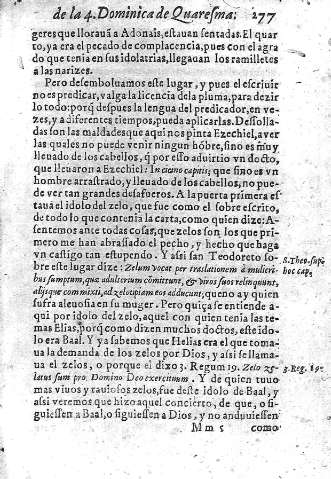 de la 4. Dominica de Quaresma. 277
geres que llorauã a Adonais, estauan sentadas. El quar
to, ya era el pecado de complacencia, pues con el agra
do que tenia en sus idolatrias, llegauan los ramilletes
a las narizes.
Pero desemboluamos este lugar, y pues el escriuir
no es predicar, valga la licencia de la pluma, para dezir
lo todo: porq̃ despues la lengua del predicador, en ve-
zes, y a diferentes tiempos, pueda aplicarlas. Desolla-
das son las maldades que aqui nos pinta Ezechiel, a ver
las quales no puede venir ningun hõbre, sino es muy
lleuado de los cabellos, q̃ por esso aduirtio vn docto,
que lleuaron a Ezechiel: In cicino capitis; que sino es vn
hombre arrastrado, y lleuado de los cabellos, no pue-
de ver tan grandes desafueros. A la puerta primera es
taua el idolo del zelo, que fue como el sobre escrito,
de todo lo que contenia la carta, como quien dize: A-
sentemos ante todas cosas, que zelos son los que pri-
mero me han abrassado el pecho, y hecho que haga
vn castigo tan estupendo. Y assi san Teodoreto so-
bre este lugar dize: Zelum vocat per traslationem à mulieri-
bus sumptum, qua adulterium cõmittunt, & viros suos relinquunt,
alijsque commixti, ad zelotipiam eos adducunt; que no ay quien
sufra aleuosia en su muger. Pero quiça se entiende a-
qui por idolo del zelo, aquel con quien tenia las te-
mas Elias, porq̃ como dizen muchos doctos, este ido-
lo era Baal. Y ya sabemos que Helias era el que toma-
ua la demanda de los zelos por Dios, y assi se llama-
ua el zelos, o porque el dixo 3. Regum 19. Zelo ze-
latus sum pro Domino Deo exercituum. Y de quien tuuo
mas viuos y rauiosos zelos, fue deste idolo de Baal, y
assi veremos que hizo aquel concierto, de que, o si-
guiessen a Baal, o siguiessen a Dios, y no anduuiessen
M m 5 como
S. Theo. sup.
hoc cap.
3. Reg. 19.